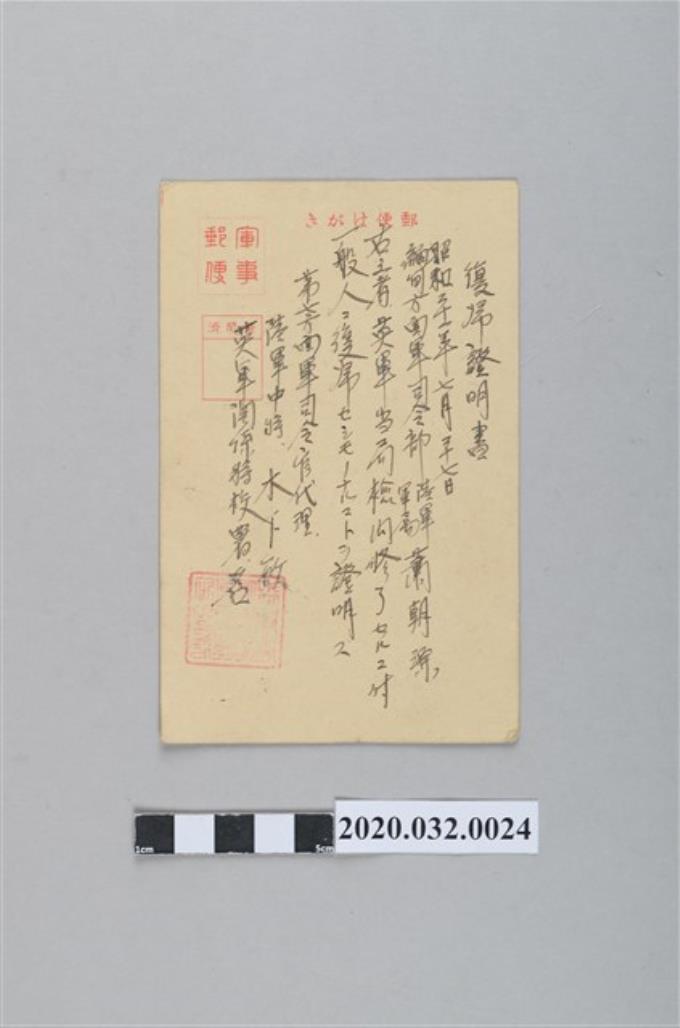 郵便はがき
軍事郵便
復帰證明書
昭和二十一年七月二十七日
緬甸方面軍司令部 陸軍軍属 蕭朝
右之者英軍当局檢閲修了セルニ付
一般人ニ復帰セシモノナルコトヲ證明ス
第七方面軍司令官代理
陸軍中將 木下敏
英軍関係將校署名
2020.032.0024
1cm
5cm